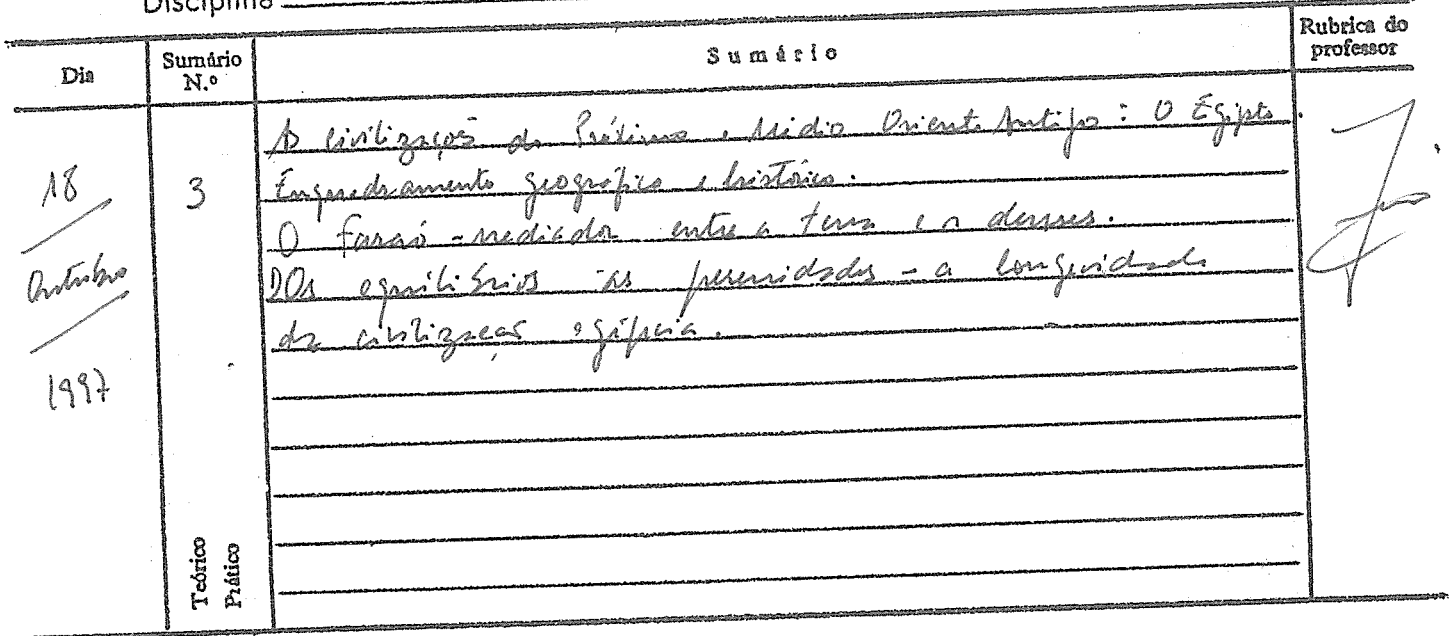 Disciplina
Dia
Sumário N.º
Sumário
Rubrica do professor
18
Outubro
1997
3
As civilizações do Próximo e Médio Oriente Antigo: O Egipto.
Enquadramento geográfico e histórico.
O faraó - mediador entre a terra e os deuses.
DOs equilíbrios às perenidades - a longevidade
da civilização egípcia.
Teórico
Prático